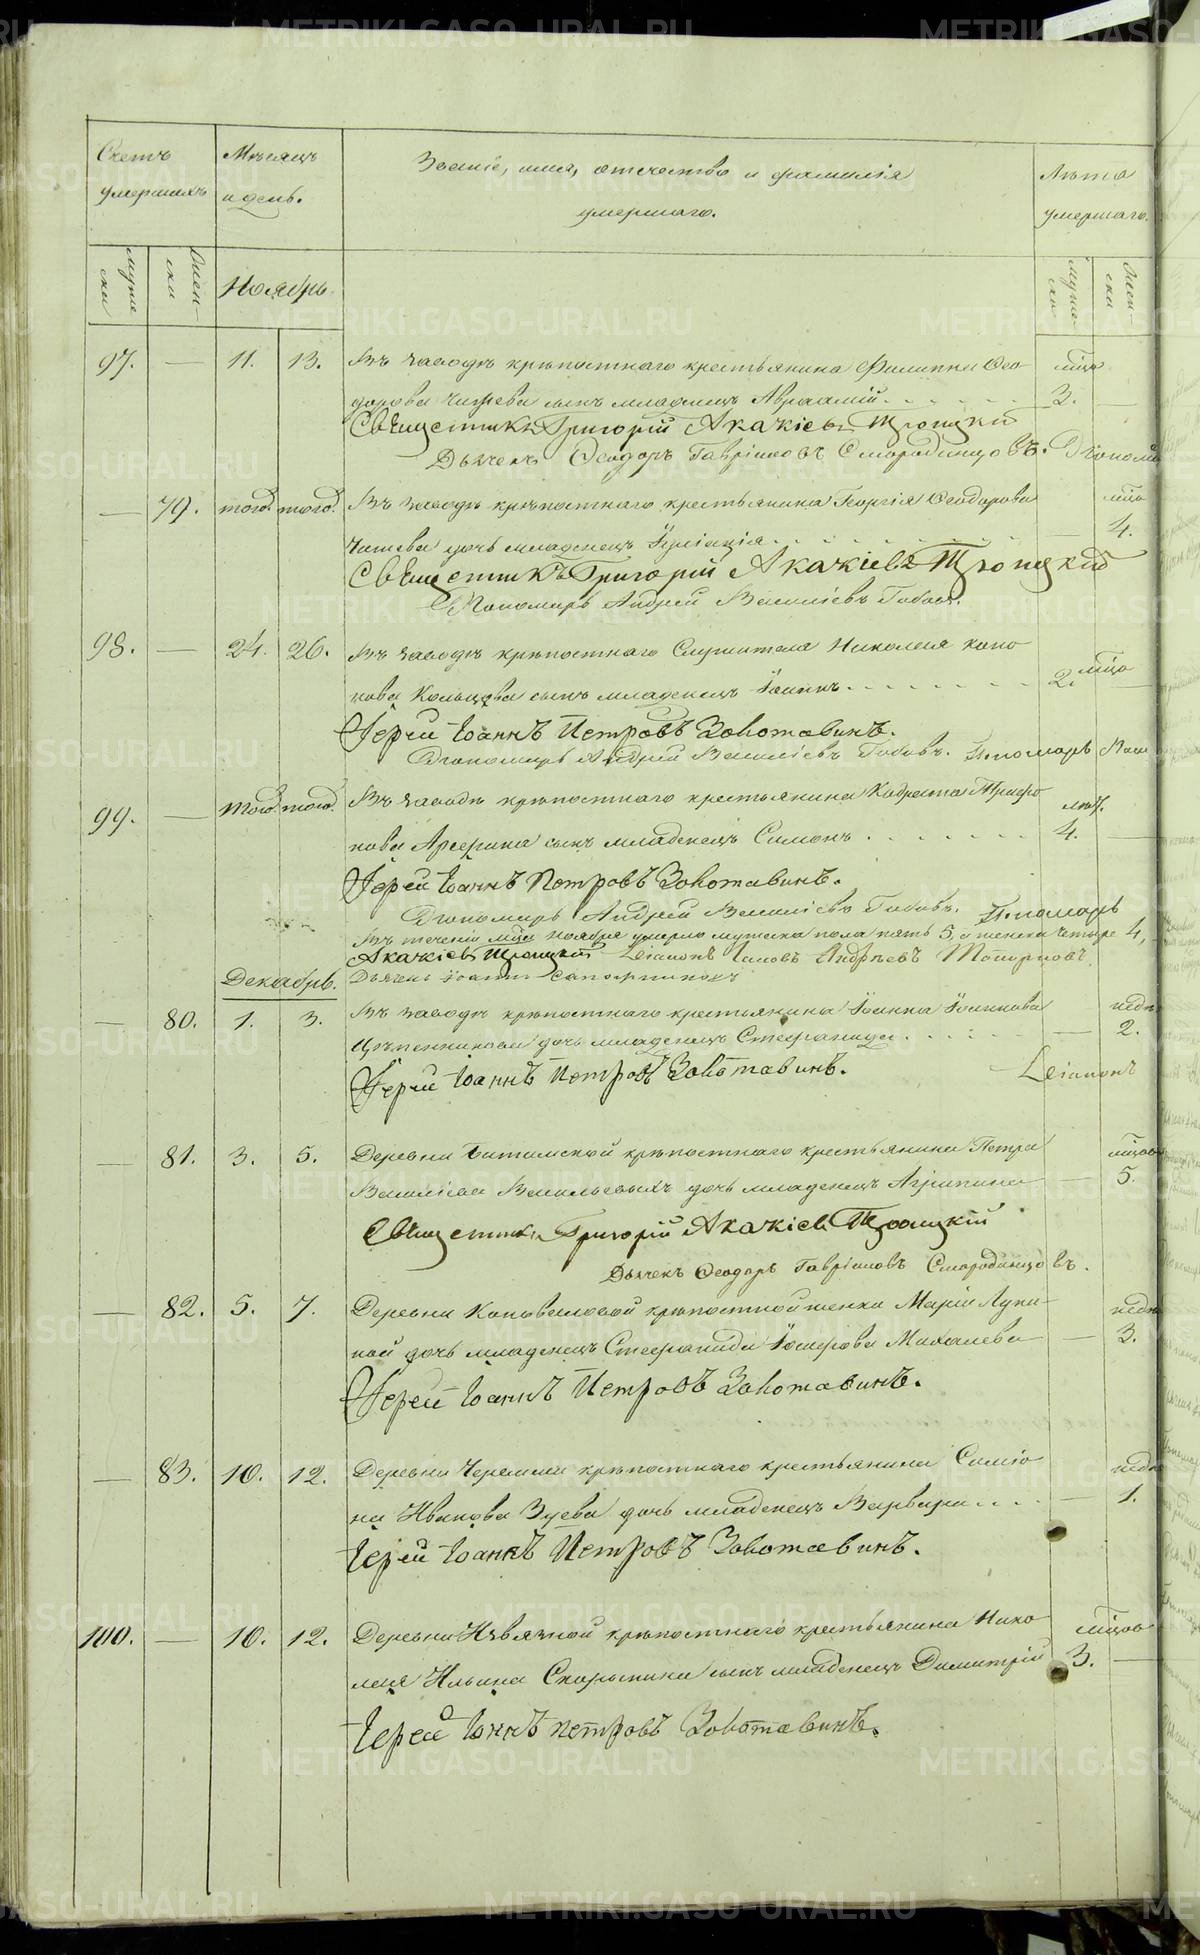 Счетъ умершихъ
Мѣсяцъ и день.
Званіе, имя, отечество и фамилія
умершаго.
Лѣта умершаго.
Муже ски
Жен- ски
Ноябрь
Муже ски
Жен- ски
97. — 11. 13. Въ заводѣ крѣпостнаго крестьянина Филиппа Ѳео мцъ
дорова сынъ младенецъ Авраамій. . . . . . 3. —
Священникъ Григорій Акакіевъ Троицкій
Дьячекъ Ѳеодоръ Гавріиловъ Смородинцовъ.
— 79. того. того. Въ заводѣ крѣпостнаго крестьянина Георгія Ѳеодорова мцъ
дочь младенецъ 4.
Священникъ Григорій Акакіевъ Троицкій
Пономарь Андрей Василіевъ
98. — 24. 26. Въ заводѣ крѣпостнаго Служителя Николая Коно мцъ
нова Кольцова сынъ младенецъ Іоаннъ. . . . . . . 2. —
Іерей Іоаннъ Петровъ Золотавинъ.
Пономарь Андрей Василіевъ Пономарь
99. — того. того. Въ заводѣ крѣпостнаго крестьянина Кодрата Трифо лѣт.
нова сынъ младенецъ Симонъ . . . . . . . 4. —
Іерей Іоаннъ Петровъ Золотавинъ.
Пономарь Андрей Василіевъ Пономарь
Въ теченіи мца Ноября умерло мужеска пола пять 5, а женска четыре 4,
Акакіевъ Троицкій Андреевъ Топорковъ
Декабрь. Дьячекъ Іоаннъ Сапожниковъ
— 80. 1. 3. Въ заводѣ крѣпостнаго крестьянина Іоанна Іоаннова недѣ
дочь младенецъ Стефанида . . . . . — 2.
Іерей Іоаннъ Петровъ Золотавинъ.
— 81. 3. 5. Деревни Битимской крѣпостнаго крестьянина Петра мцов
Василіева Васильевыхъ дочь младенецъ Агрипина — 5.
Священникъ Григорій Акакіевъ Троицкій
Дьячекъ Ѳеодоръ Гавріиловъ Смородинцовъ.
— 82. 5. 7. Деревни Коноваловой крѣпостной женки Маріи Лупи- недѣ
ной дочь младенецъ Стефанида Іосифова Махалева — 3.
Іерей Іоаннъ Петровъ Золотавинъ.
— 83. 10. 12. Деревни Черемши крѣпостнаго крестьянина Симео недѣ
на Иванова Зуева дочь младенецъ Варвара . . . . — 1.
Іерей Іоаннъ Петровъ Золотавинъ.
100. — 10. 12. Деревни Извязной крѣпостнаго крестьянина Нико мцов
лая Ильина Скорынина сынъ младенецъ Димитрій 3. —
Іерей Іоаннъ Петровъ Золотавинъ.
METRIKI.GASO-URAL.RU